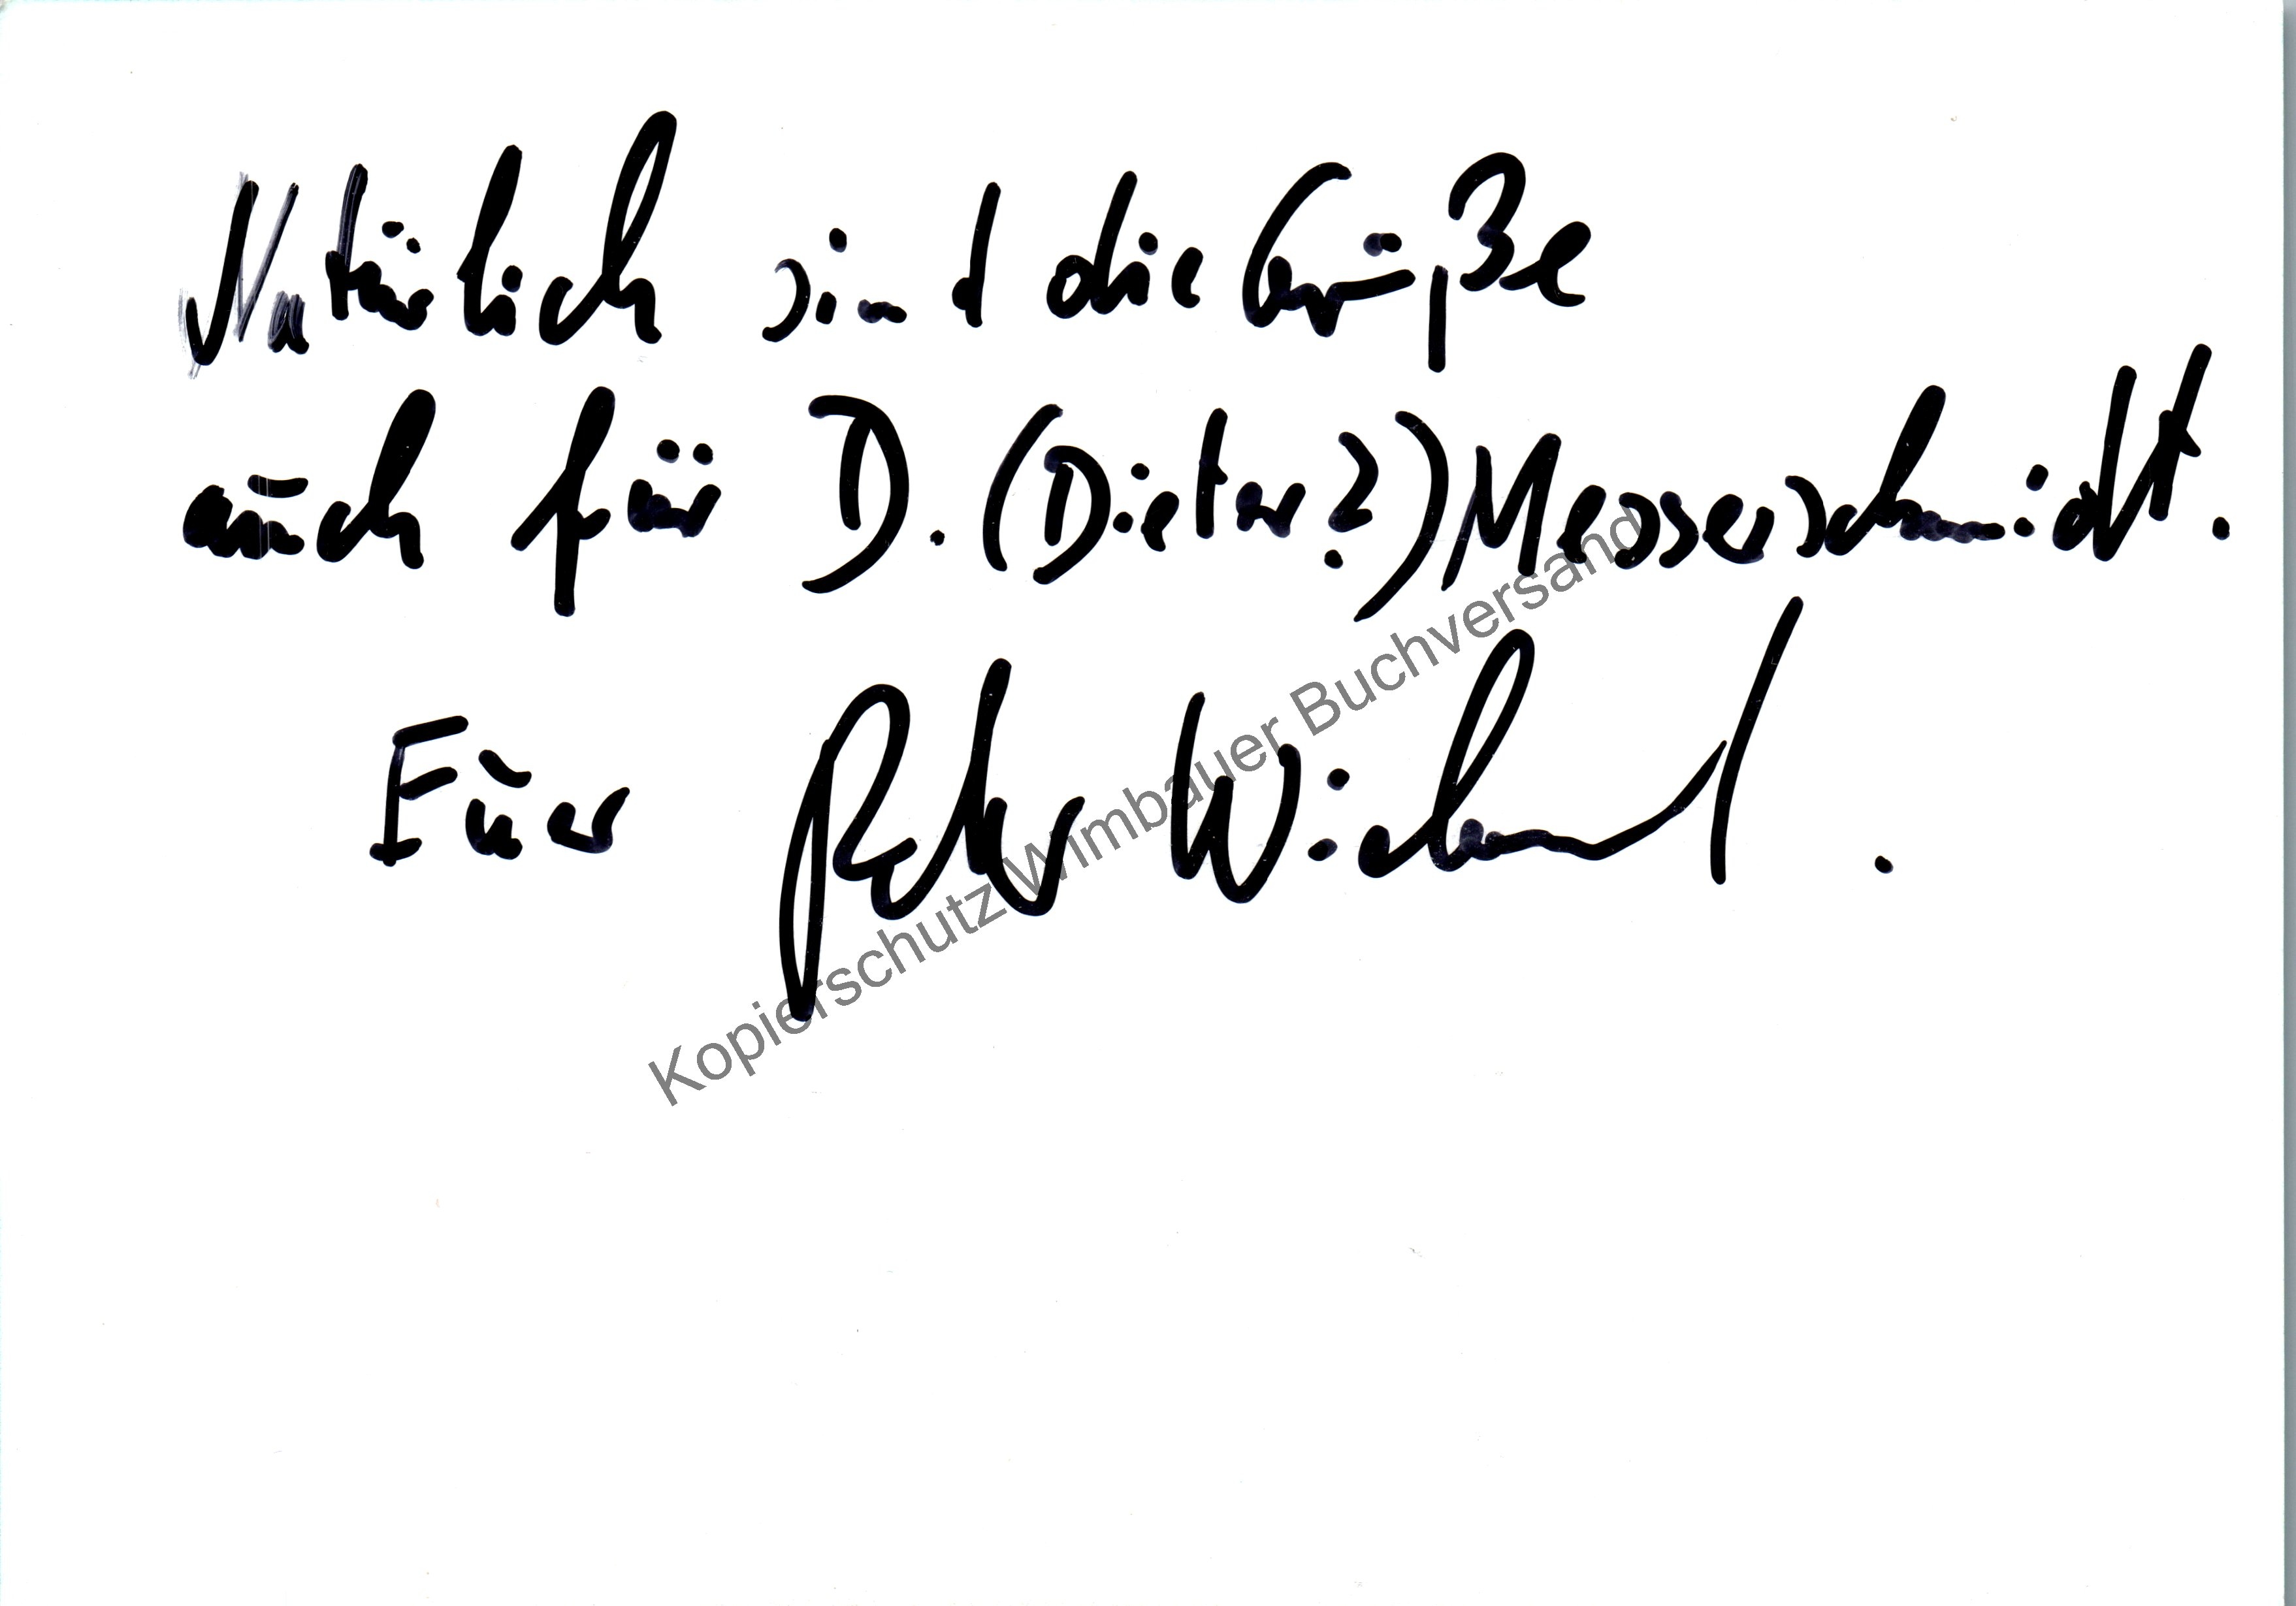 Natürlich sind die Grüße
auch für D. (Dieter?) Messerschmidt.
Euer Peter Wichmann.
Kopierschutz Wimbauer Buchversand